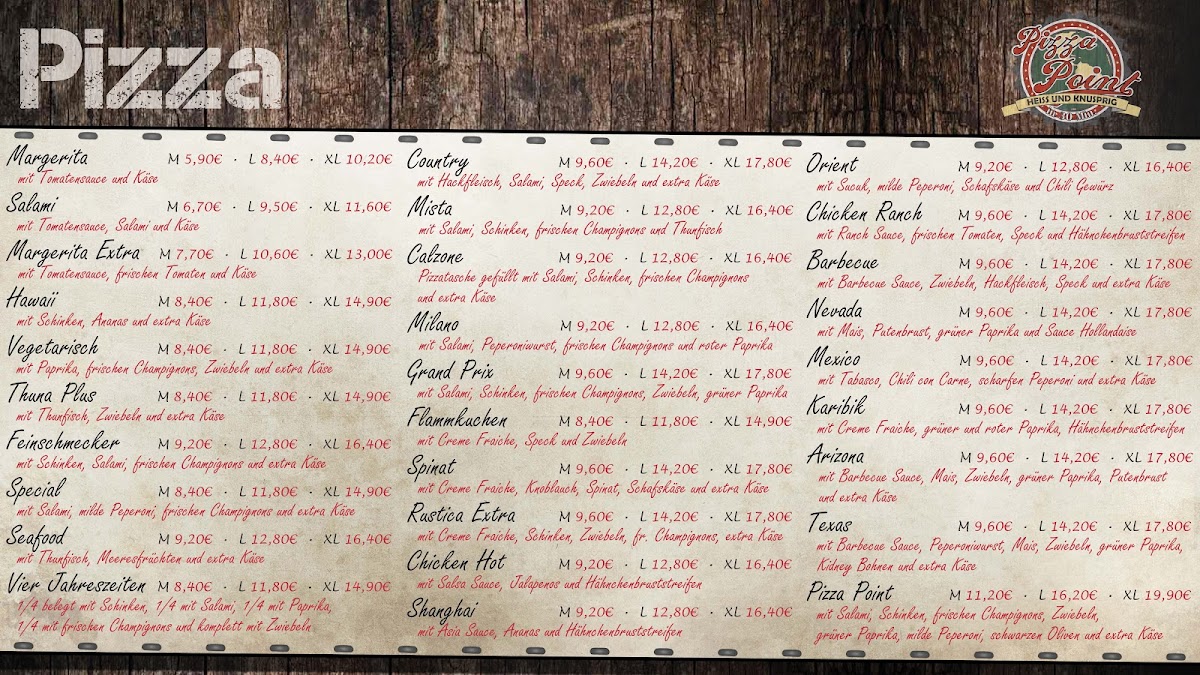 Pizza
Pizza
Point
HEISS UND KNUSPRIG
Margerita M 5,90€ · L 8,40€ · XL 10,20€
mit Tomatensauce und Käse
Salami M 6,70€ · L 9,50€ · XL 11,60€
mit Tomatensauce, Salami und Käse
Margerita Extra M 7,70€ · L 10,60€ · XL 13,00€
mit Tomatensauce, frischen Tomaten und Käse
Hawaii M 8,40€ · L 11,80€ · XL 14,90€
mit Schinken, Ananas und extra Käse
Vegetarisch M 8,40€ · L 11,80€ · XL 14,90€
mit Paprika, frischen Champignons, Zwiebeln und extra Käse
Thuna Plus M 8,40€ · L 11,80€ · XL 14,90€
mit Thunfisch, Zwiebeln und extra Käse
Feinschmecker M 9,20€ · L 12,80€ · XL 16,40€
mit Schinken, Salami, frischen Champignons und extra Käse
Special M 8,40€ · L 11,80€ · XL 14,90€
mit Salami, milde Peperoni, frischen Champignons und extra Käse
Seafood M 9,20€ · L 12,80€ · XL 16,40€
mit Thunfisch, Meeresfrüchten und extra Käse
Vier Jahreszeiten M 8,40€ · L 11,80€ · XL 14,90€
1/4 belegt mit Schinken, 1/4 mit Salami, 1/4 mit Paprika,
1/4 mit frischen Champignons und komplett mit Zwiebeln
Country M 9,60€ · L 14,20€ · XL 17,80€
mit Hackfleisch, Salami, Speck, Zwiebeln und extra Käse
Mista M 9,20€ · L 12,80€ · XL 16,40€
mit Salami, Schinken, frischen Champignons und Thunfisch
Calzone M 9,20€ · L 12,80€ · XL 16,40€
Pizzatasche gefüllt mit Salami, Schinken, frischen Champignons
und extra Käse
Milano M 9,20€ · L 12,80€ · XL 16,40€
mit Salami, Peperoniwurst, frischen Champignons und roter Paprika
Grand Prix M 9,60€ · L 14,20€ · XL 17,80€
mit Salami, Schinken, frischen Champignons, Zwiebeln, grüner Paprika
Flammkuchen M 8,40€ · L 11,80€ · XL 14,90€
mit Creme Fraiche, Speck und Zwiebeln
Spinat M 9,60€ · L 14,20€ · XL 17,80€
mit Creme Fraiche, Knoblauch, Spinat, Schafskäse und extra Käse
Rustica Extra M 9,60€ · L 14,20€ · XL 17,80€
mit Creme Fraiche, Schinken, Zwiebeln, fr. Champignons, extra Käse
Chicken Hot M 9,20€ · L 12,80€ · XL 16,40€
mit Salsa Sauce, Jalapenos und Hähnchenbruststreifen
Shanghai M 9,20€ · L 12,80€ · XL 16,40€
mit Asia Sauce, Ananas und Hähnchenbruststreifen
Orient M 9,20€ · L 12,80€ · XL 16,40€
mit Sucuk, milde Peperoni, Schafskäse und Chili Gewürz
Chicken Ranch M 9,60€ · L 14,20€ · XL 17,80€
mit Ranch Sauce, frischen Tomaten, Speck und Hähnchenbruststreifen
Barbecue M 9,60€ · L 14,20€ · XL 17,80€
mit Barbecue Sauce, Zwiebeln, Hackfleisch, Speck und extra Käse
Nevada M 9,60€ · L 14,20€ · XL 17,80€
mit Mais, Putenbrust, grüner Paprika und Sauce Hollandaise
Mexico M 9,60€ · L 14,20€ · XL 17,80€
mit Tabasco, Chili con Carne, scharfen Peperoni und extra Käse
Karibik M 9,60€ · L 14,20€ · XL 17,80€
mit Creme Fraiche, grüner und roter Paprika, Hähnchenbruststreifen
Arizona M 9,60€ · L 14,20€ · XL 17,80€
mit Barbecue Sauce, Mais, Zwiebeln, grüner Paprika, Putenbrust
und extra Käse
Texas M 9,60€ · L 14,20€ · XL 17,80€
mit Barbecue Sauce, Peperoniwurst, Mais, Zwiebeln, grüner Paprika,
Kidney Bohnen und extra Käse
Pizza Point M 11,20€ · L 16,20€ · XL 19,90€
mit Salami, Schinken, frischen Champignons, Zwiebeln,
grüner Paprika, milde Peperoni, schwarzen Oliven und extra Käse